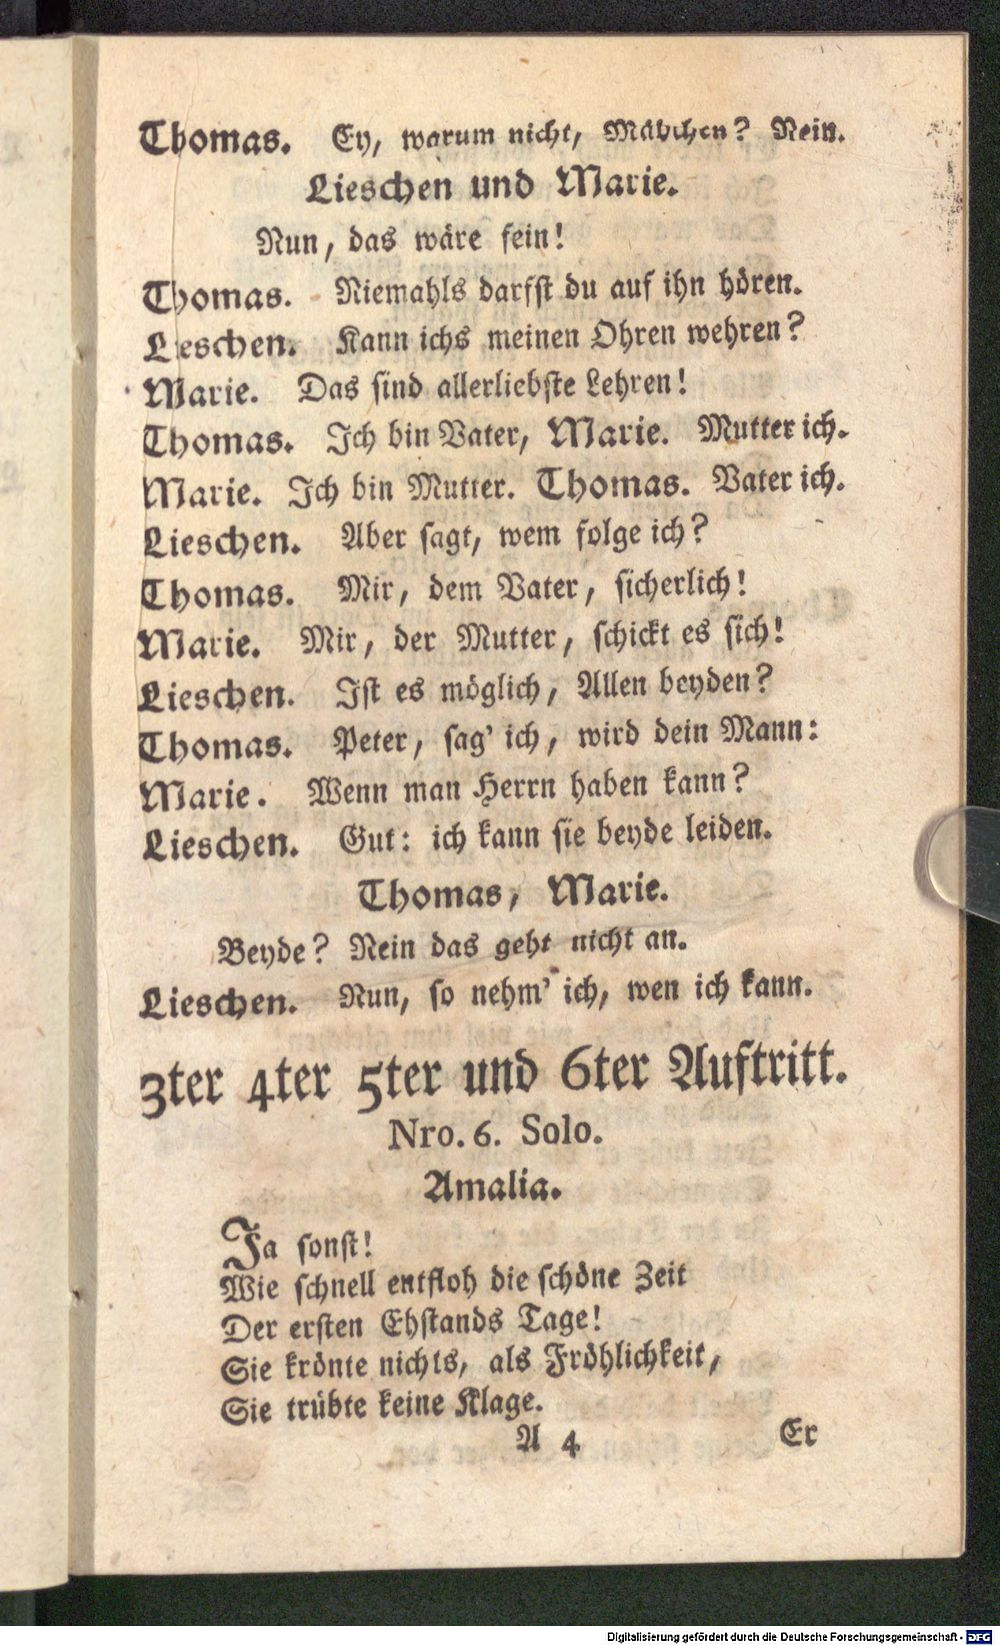 Thomas. Ey, warum nicht, Mädchen? Nein.
Lieschen und Marie.
Nun, das wäre fein!
Thomas. Niemahls darfst du auf ihn hören.
Lieschen. Kann ichs meinen Ohren wehren?
Marie. Das sind allerliebste Lehren!
Thomas. Ich bin Vater, Marie. Mutter ich.
Marie. Ich bin Mutter. Thomas. Vater ich.
Lieschen. Aber sagt, wem folge ich?
Thomas. Mir, dem Vater, sicherlich!
Marie. Mir, der Mutter, schickt es sich!
Lieschen. Ist es möglich, Allen beyden?
Thomas. Peter, sag' ich, wird dein Mann:
Marie. Wenn man Herrn haben kann?
Lieschen. Gut: ich kann sie beyde leiden.
Thomas, Marie.
Beyde? Nein das geht nicht an.
Lieschen. Nun, so nehm' ich, wen ich kann.
3ter 4ter 5ter und 6ter Auftritt.
Nro. 6. Solo.
Amalia.
Ja sonst!
Wie schnell entfloh die schöne Zeit
Der ersten Ehstands Tage!
Sie krönte nichts, als Fröhlichkeit,
Sie trübte keine Klage.
A 4 Er
Digitalisierung gefördert durch die Deutsche Forschungsgemeinschaft - DFG